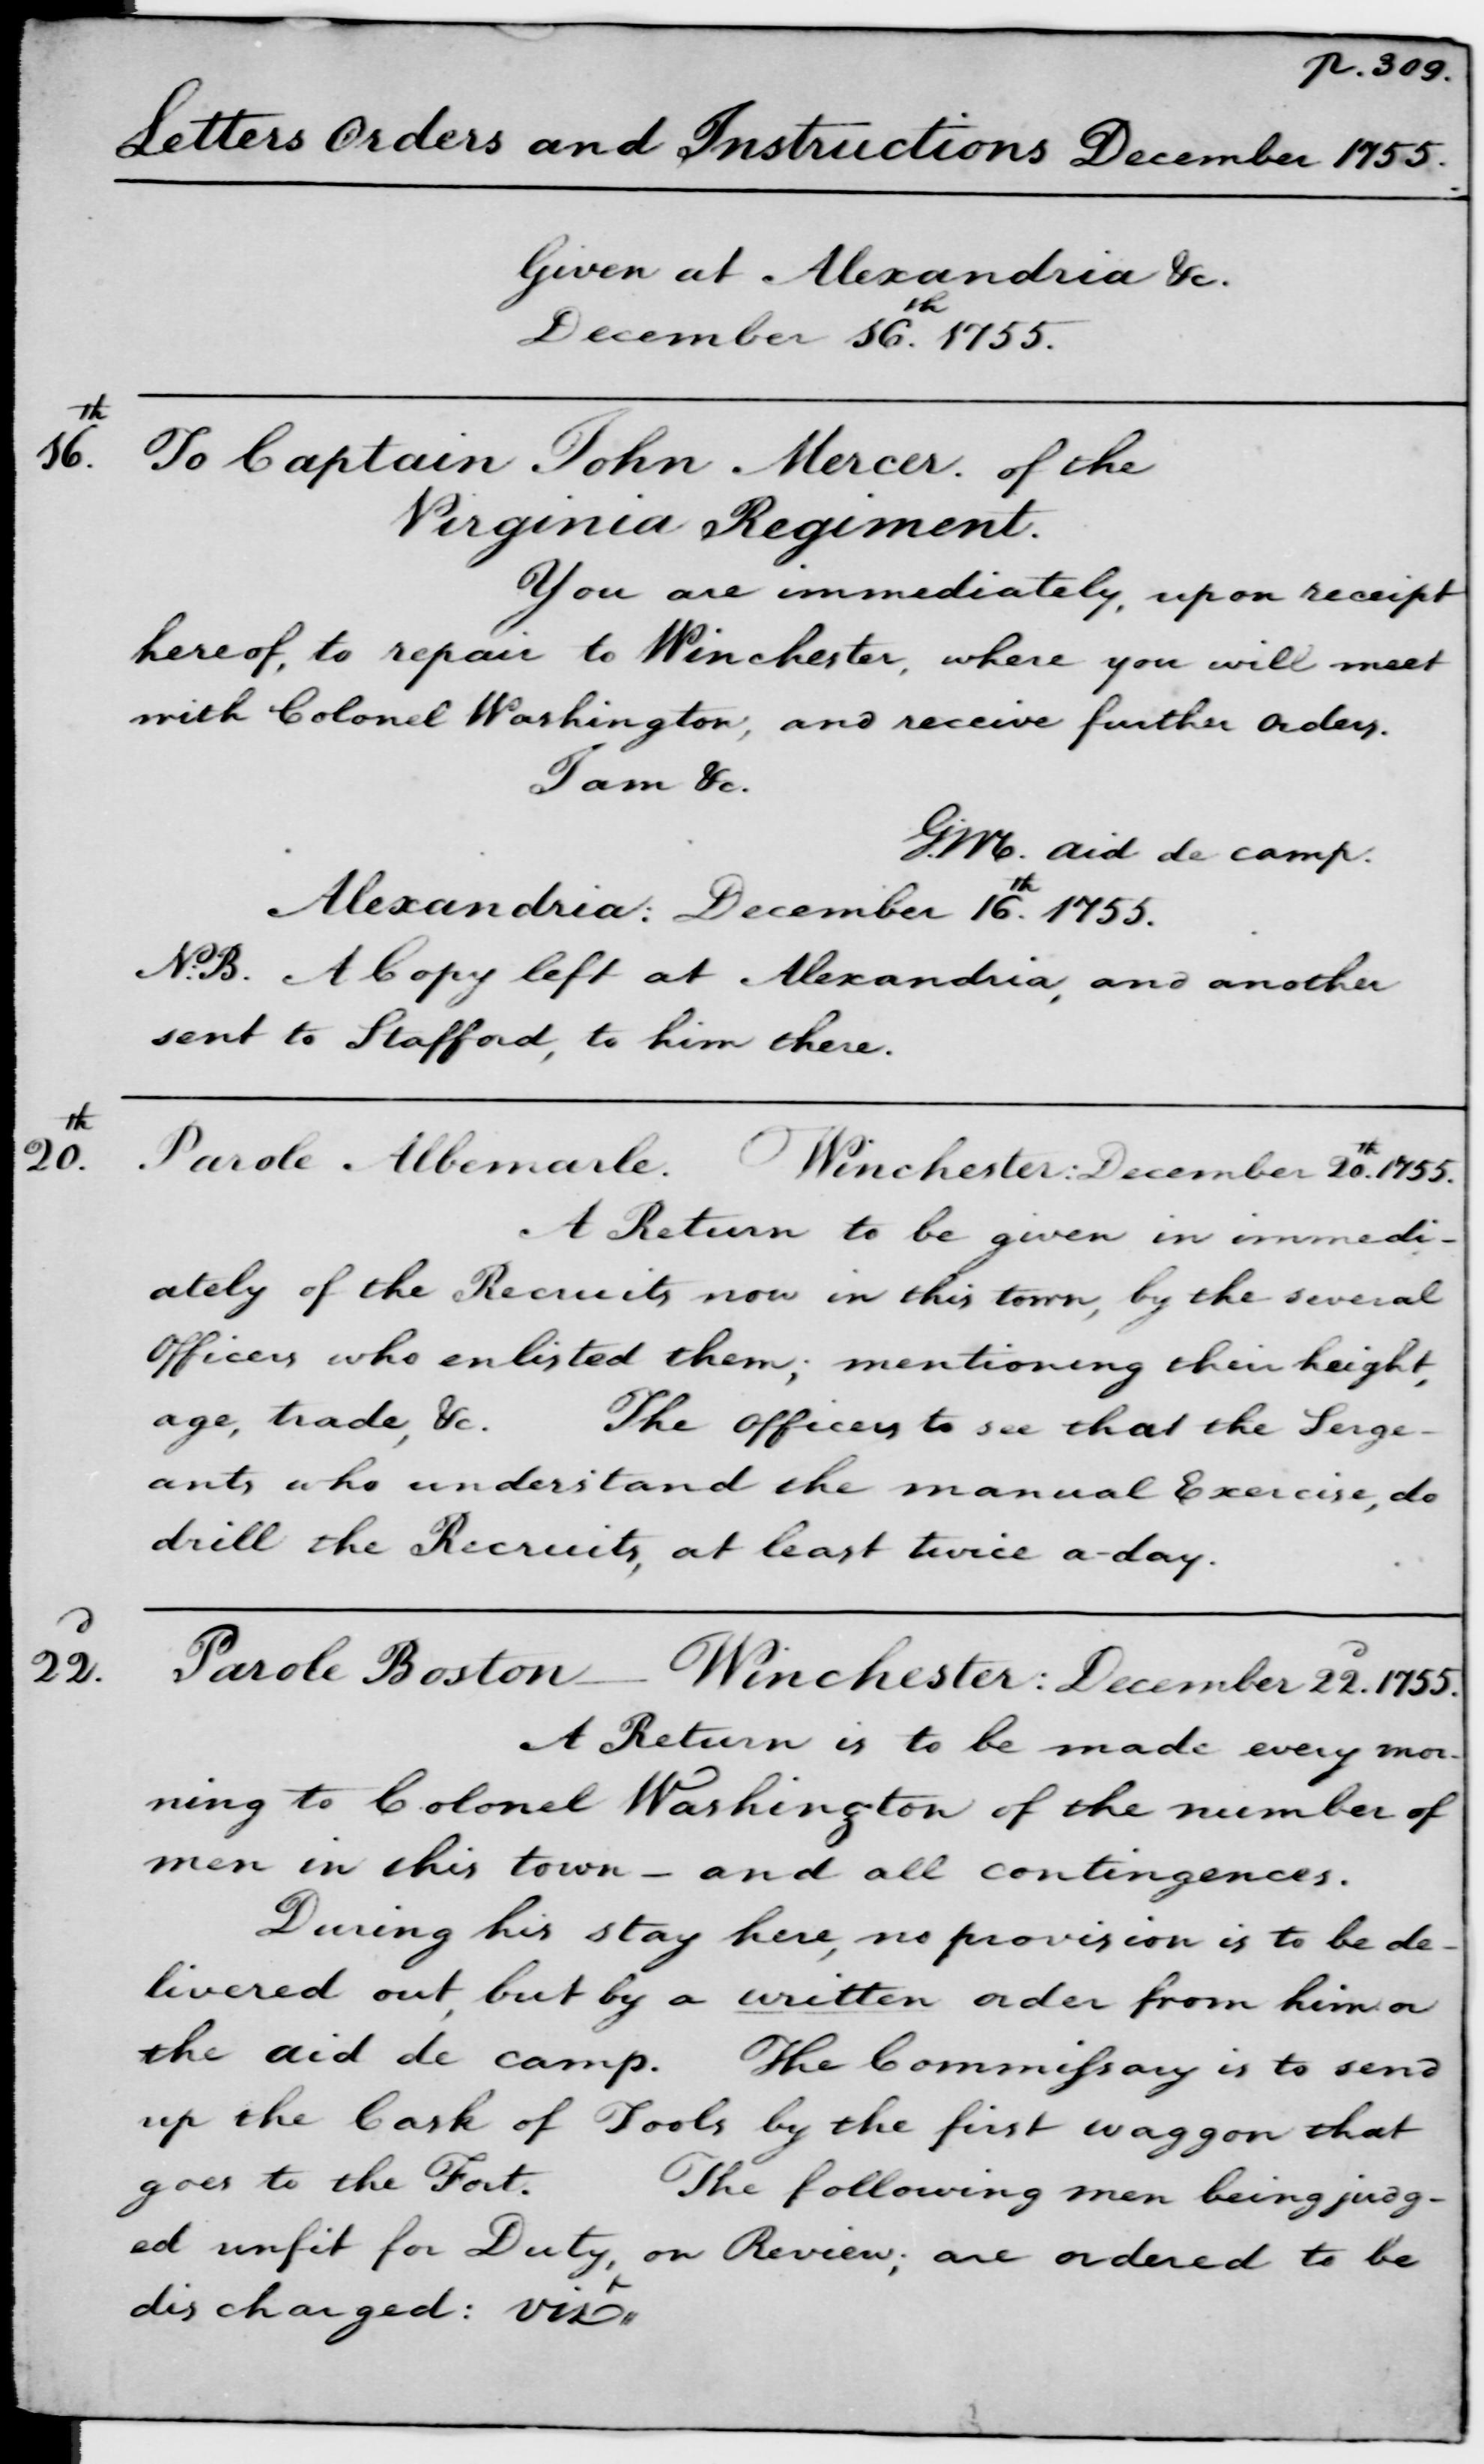 p. 309.
Letters Orders and Instructions December 1755.
Given at Alexandria &c.
December 16.th 1755.
16.th To Captain John Mercer. of the
Virginia Regiment.
You are immediately, upon receipt
hereof, to repair to Winchester, where you will meet
with Colonel Washington, and receive further orders.
I am &c.
G.M. aid de camp.
Alexandria: December 16.th 1755.
N.B. A Copy left at Alexandria, and another
sent to Stafford, to him there.
20.th Parole Albemarle. Winchester: December 20.th 1755.
A Return to be given in immedi-
ately of the Recruits now in this town, by the several
Officers who enlisted them; mentioning their height,
age, trade, &c. The Officers to see that the Serge-
ants who understand the manual Exercise, do
drill the Recruits, at least twice a-day.
22.d Parole Boston — Winchester: December 22.d 1755.
A Return is to be made every mor-
ning to Colonel Washington of the number of
men in this town - and all contingences.
During his stay here, no provision is to be de-
livered out, but by a written order from him or
the aid de camp. The Commissary is to send
up the Cask of Tools by the first waggon that
goes to the Fort. The following men being judg-
ed unfit for Duty, on Review; are ordered to be
discharged: vizt.